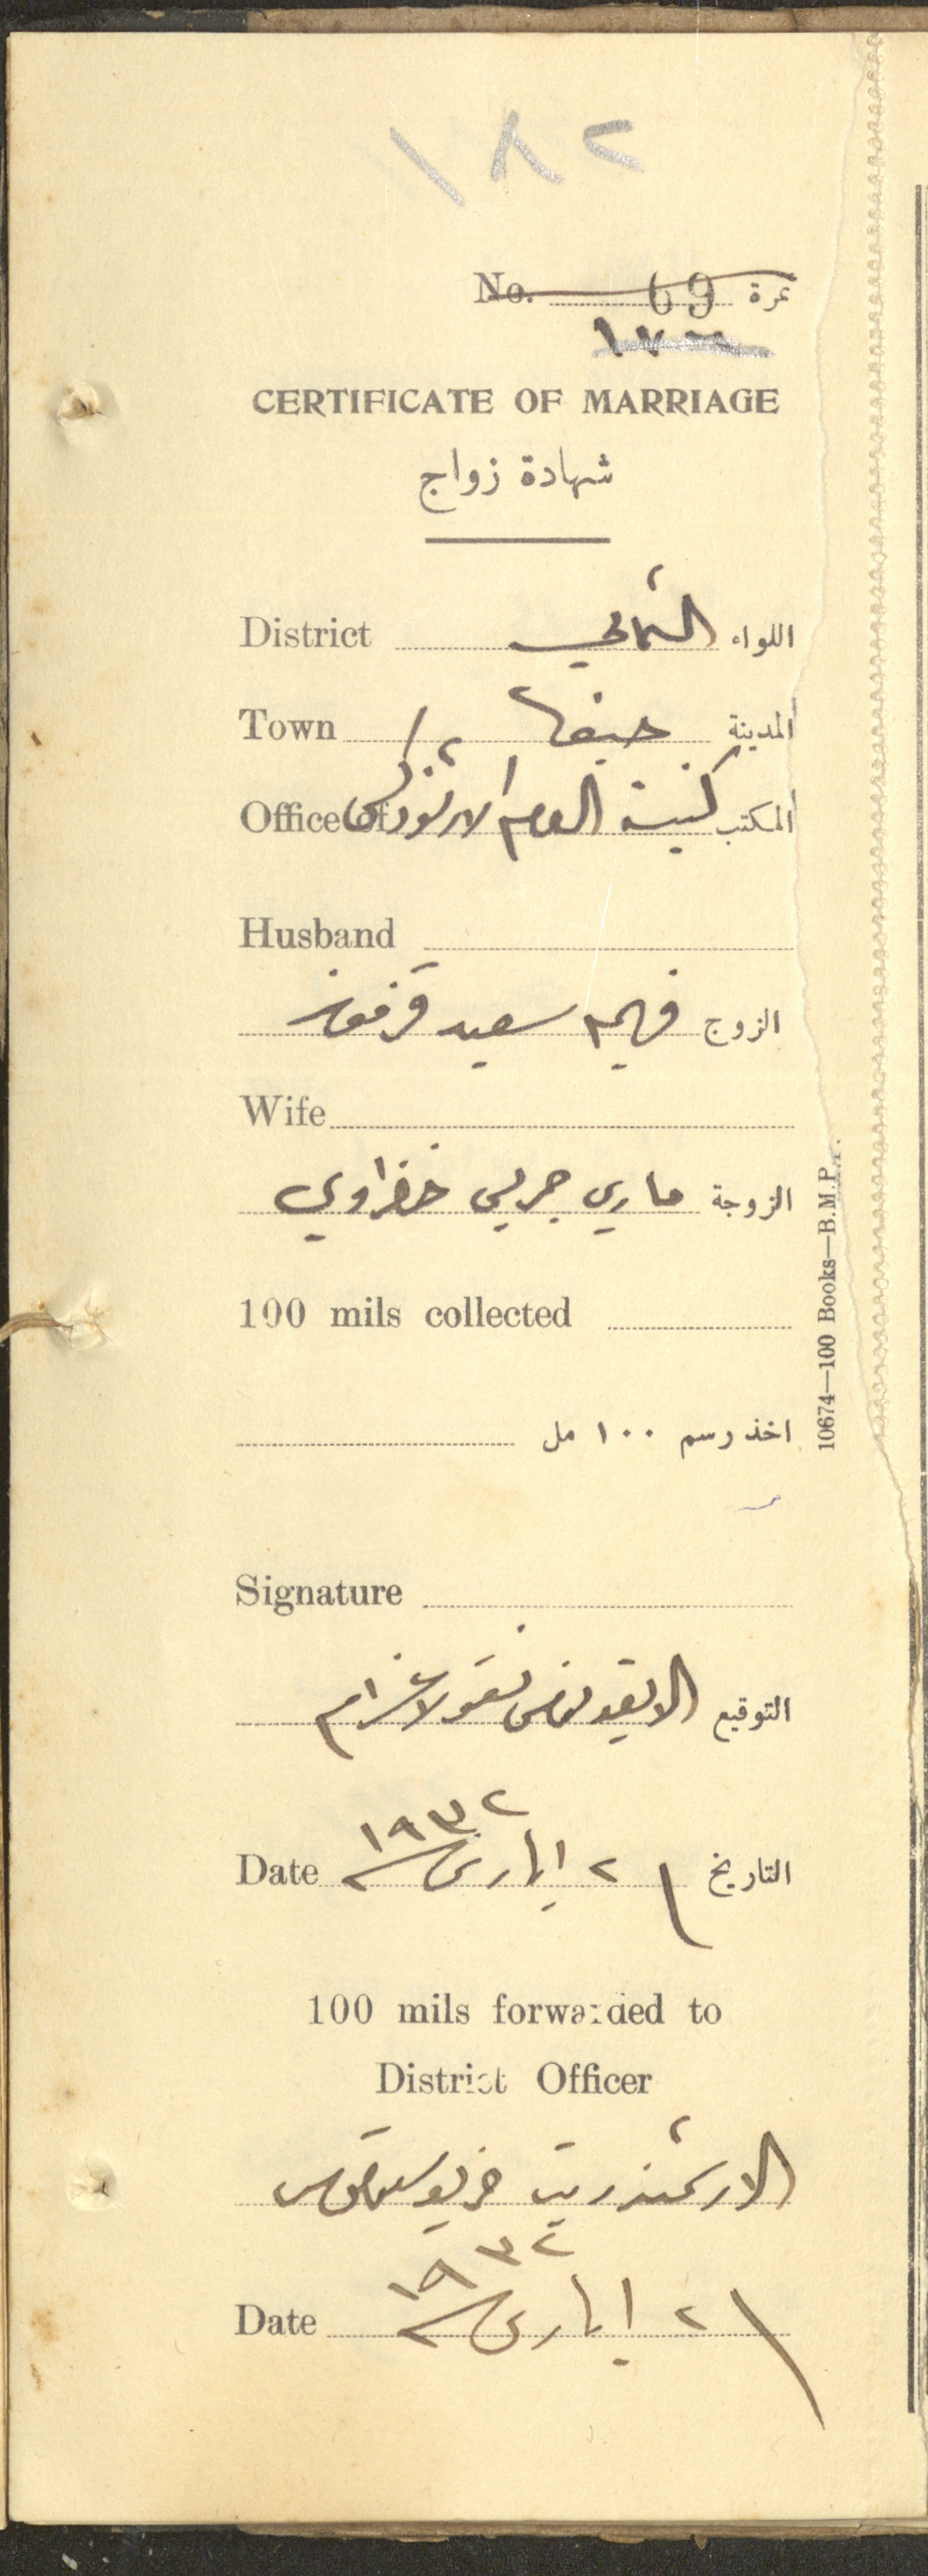 ١٨٢
No. 69 نمرة
CERTIFICATE OF MARRIAGE
شهادة زواج
District الشمالي اللواء
Town حيفا المدينة
Office of كنيسة الروم الارثوذكس المكتب
Husband
الزوج فهيم سعيد
Wife
الزوجة ماري جريس خضراوي
100 mils collected
اخذ رسم ١٠٠ مل
Signature
التوقيع الايقونومس نقولا
Date ٢ ايار سنة ١٩٣٢ التاريخ
100 mils forwarded to
District Officer
الارشمندريت
Date ٢ ايار سنة ١٩٣٢
10674—100 Books—B.M.P.